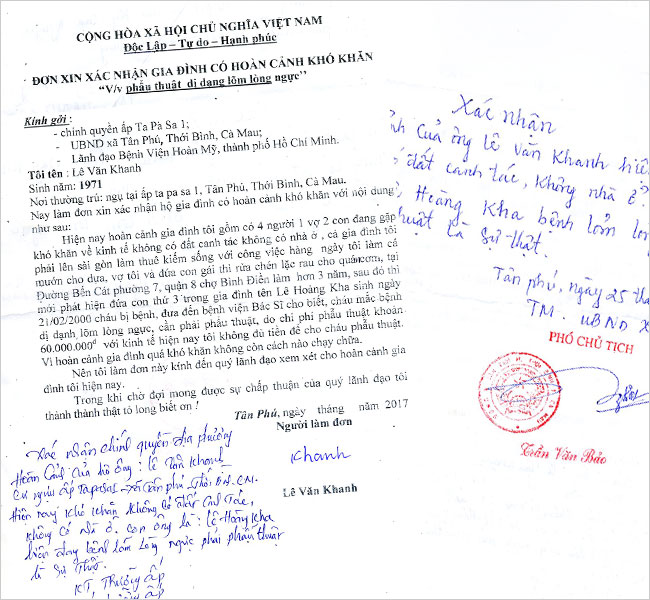 CỘNG HÒA XÃ HỘI CHỦ NGHĨA VIỆT NAM
Độc Lập – Tự do – Hạnh phúc
ĐƠN XIN XÁC NHẬN GIA ĐÌNH CÓ HOÀN CẢNH KHÓ KHĂN
“V/v phẩu thuật dị dạng lõm lòng ngực’’
Kính gởi :
- chính quyền ấp Ta Pà Sa 1;
- UBND xã Tân Phú, Thới Bình, Cà Mau;
- Lãnh đạo Bệnh Viện Hoàn Mỹ, thành phố Hồ Chí Minh.
Tôi tên : Lê Văn Khanh
Sinh năm: 1971
Nơi thường trú: ngụ tại ấp ta pa sa 1, Tân Phú, Thới Bình, Cà Mau.
Nay làm đơn xin xác nhận hộ gia đình có hoàn cảnh khó khăn với nội dung
như sau:
Hiện nay hoàn cảnh gia đình tôi gồm có 4 người 1 vợ 2 con đang gặp
khó khăn về kinh tế không có đất canh tác không có nhà ở , cả gia đình tôi
phải lên sài gòn làm thuê kiếm sống với công việc hàng ngày tôi làm cá
mướn cho dựa, vợ tôi và đứa con gái thì rửa chén lặc rau cho quán cơm, tại
Đường Bến Cát phường 7, quận 8 chợ Bình Điền làm hơn 3 năm, sau đó thì
mới phát hiện đứa con thứ 3 trong gia đình tên Lê Hoàng Kha sinh ngày
21/02/2000 cháu bị bệnh, đưa đến bệnh viện Bác Sĩ cho biết, cháu mắc bệnh
dị dạnh lõm lòng ngực, cần phải phẩu thuật, do chi phí phẩu thuật khoản
60.000.000đ với kinh tế hiện nay tôi không đủ tiền để cho cháu phẩu thuật.
Vì hoàn cảnh gia đình quá khó khăn không còn cách nào chạy chữa.
Nên tôi làm đơn này kính đến quý lãnh đạo xem xét cho hoàn cảnh gia
đình tôi hiện nay.
Trong khi chờ đợi mong được sự chấp thuận của quý lãnh đạo tôi
thành thành thật tỏ long biết ơn !
Tân Phú, ngày tháng năm 2017
Người làm đơn
Khanh
Lê Văn Khanh
Xác nhận chính quyền địa phương
Hoàn cảnh của hộ ông : Lê Văn Khanh
Cư ngụ ấp Tapasa1 xã Tân phú Thới B. CM.
Hiện nay khó khăn không có đất canh tác,
không có nhà ở. con ông là : Lê Hoàng Kha
hiện đang bệnh lõm lòng ngực phải phẩu thuật
là sự thật.
KT, Trưởng ấp
Xác nhận
cảnh của ông lê văn Khanh hiện
đất canh tác, không nhà ở.
Hoàng Kha bệnh lõm lòng
thuật là sự thật.
Tân phú, ngày 25 thá
TM. UBND X
PHÓ CHỦ TỊCH
Trần Văn Bảo